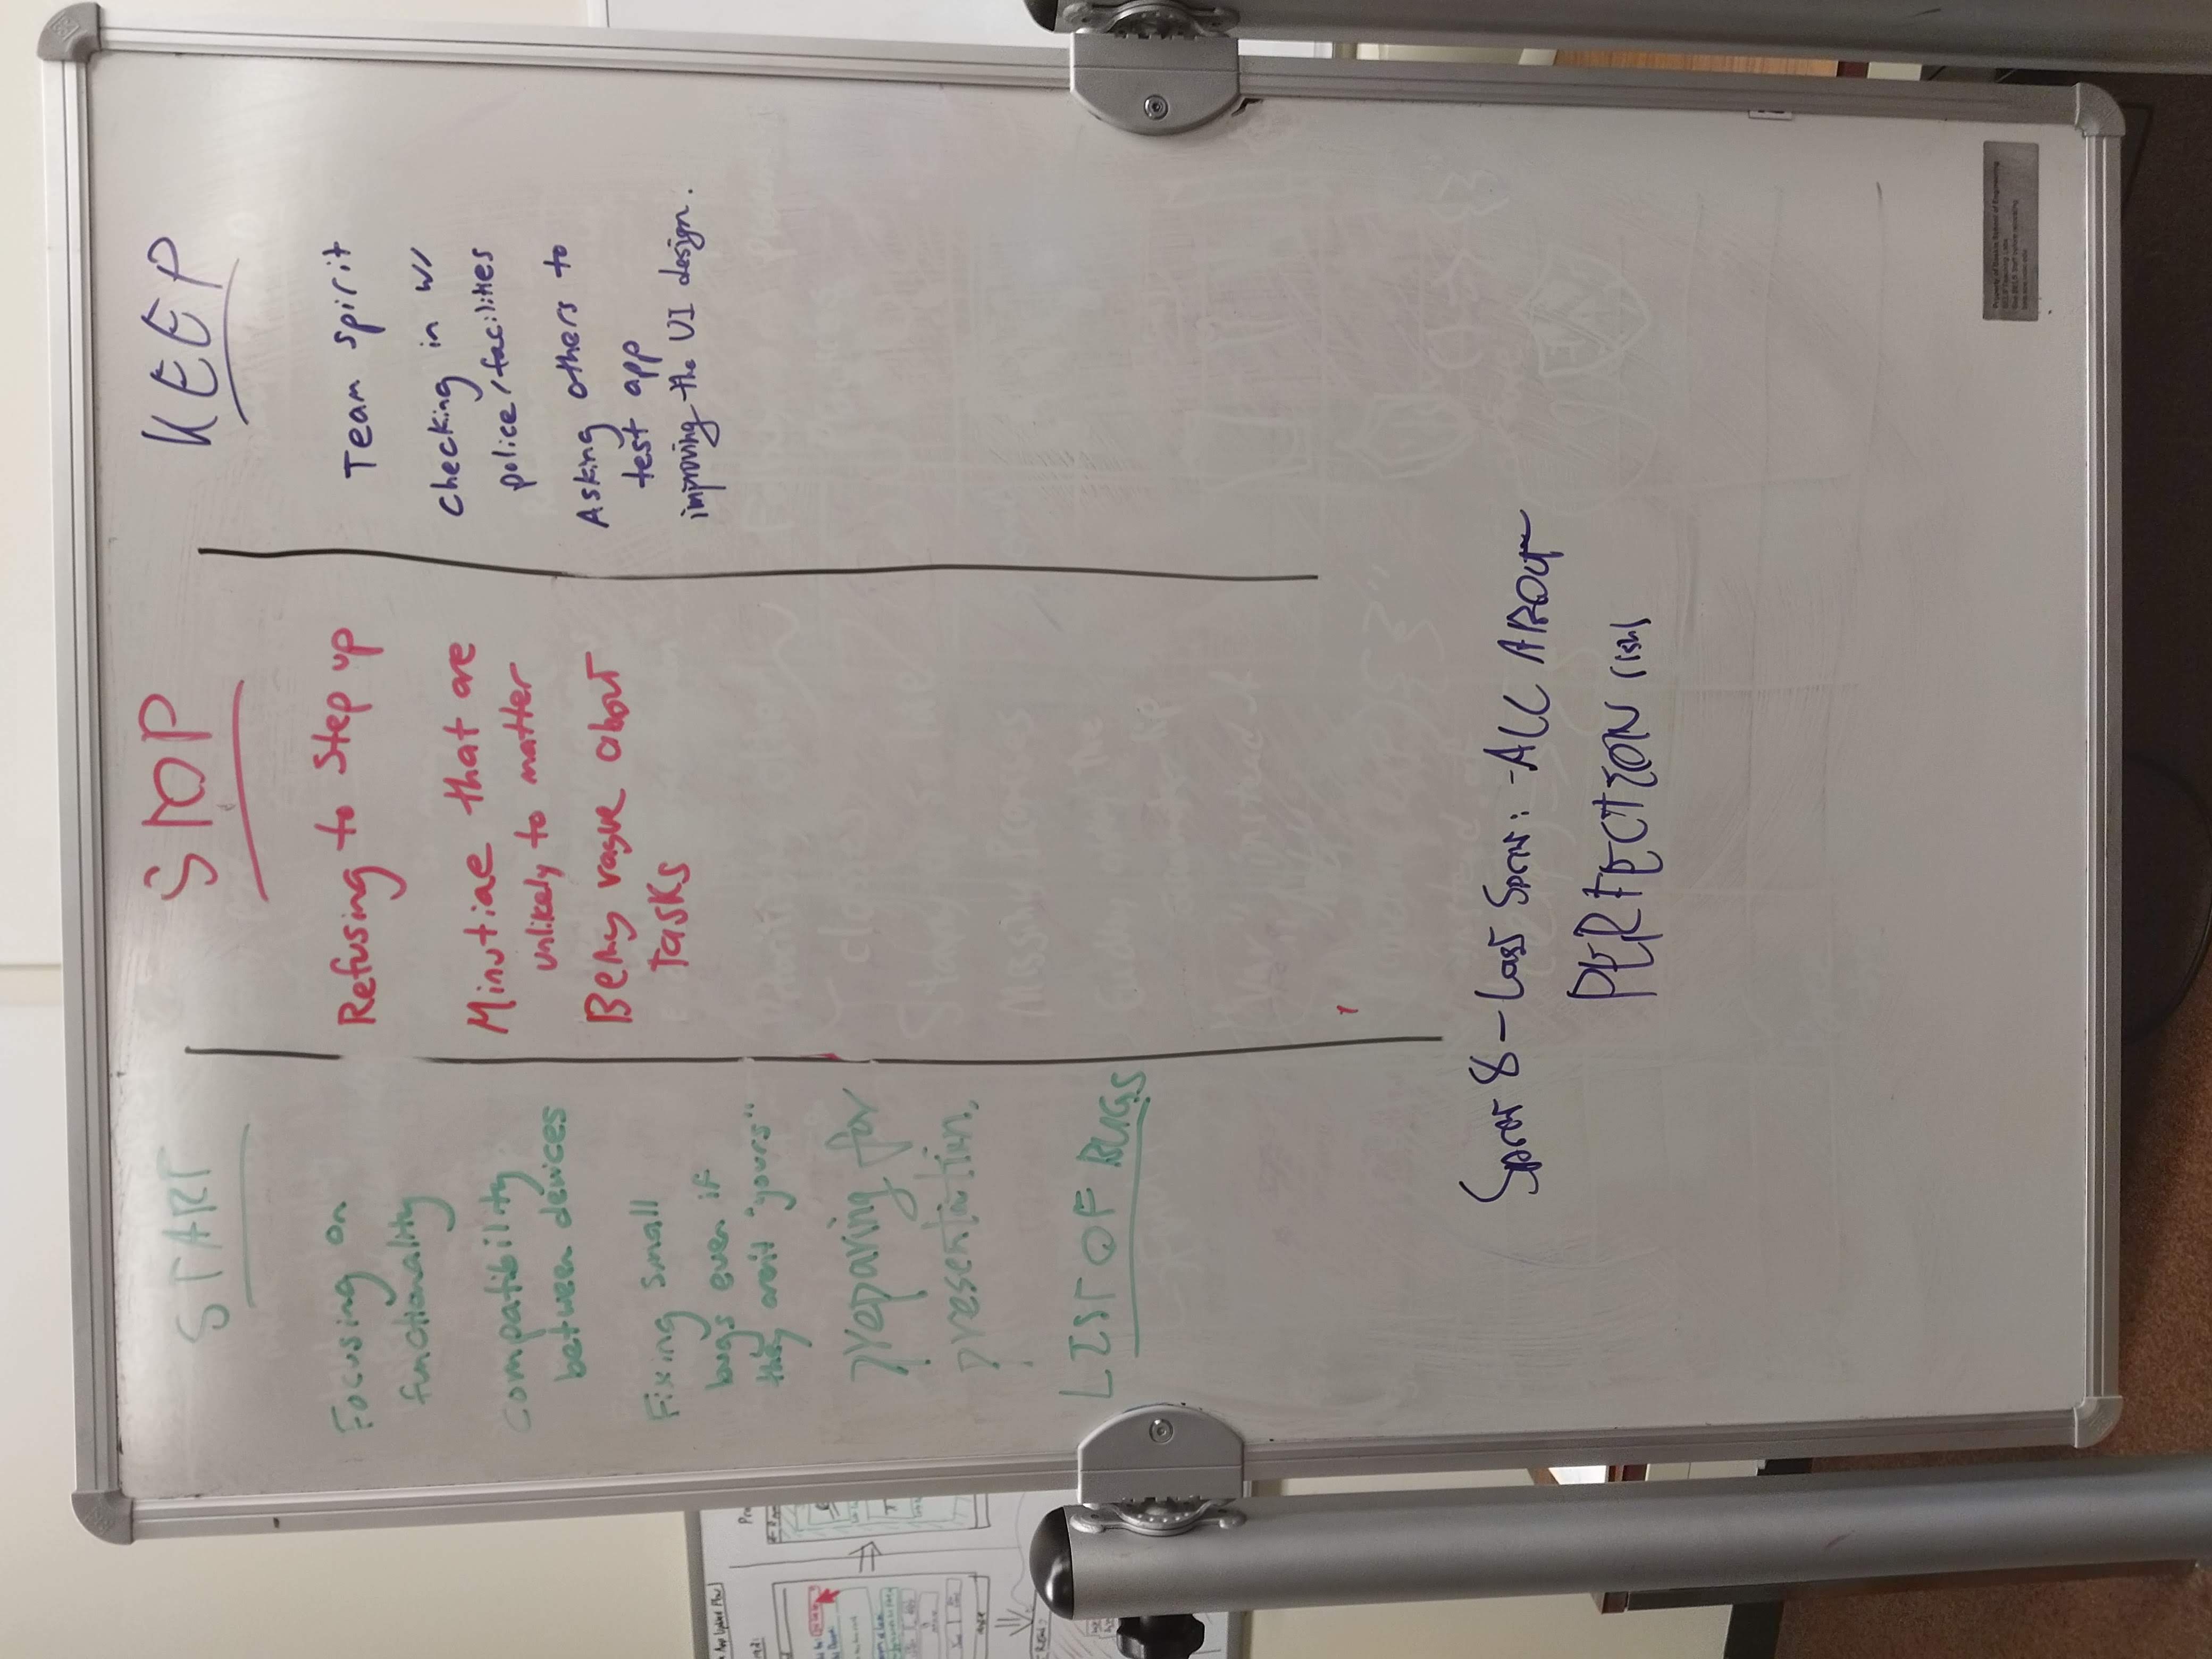 START
Focusing on
functionality
Compatibility
between devices
Fixing small
bugs even if
they aren't "yours"
preparing for
presentation.
LIST OF BUGS
STOP
Refusing to Step up
Minutiae that are
unlikely to matter
Being vague about
tasks
KEEP
Team spirit
checking in w/
police/facilities
Asking others to
test app
improving the UI design.
Sprint 8 - Last Sprint: - ALL ABOUT
PERFECTION (ish)
Property of Baskin School of Engineering
BELS Teaching Labs
See BELS Staff before removing